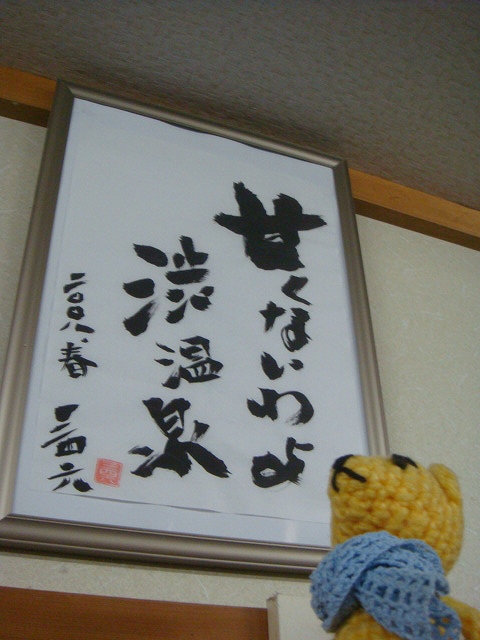 甘くないわよ
渋温泉
二〇〇八、春